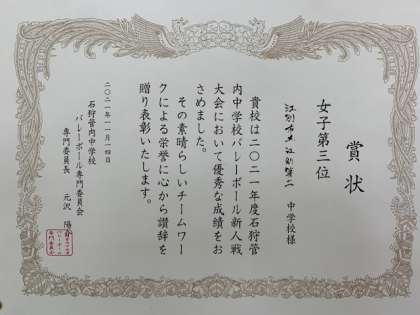 賞状
女子第三位
江別市立江別第二 中学校様
貴校は二〇二一年度石狩管
内中学校バレーボール新人戦
大会において優秀な成績をお
さめました。
その素晴らしいチームワー
クによる栄誉に心から讃辞を
贈り表彰いたします。
二〇二一年十一月十四日
石狩管内中学校
バレーボール専門委員会
専門委員長 元沢 陽